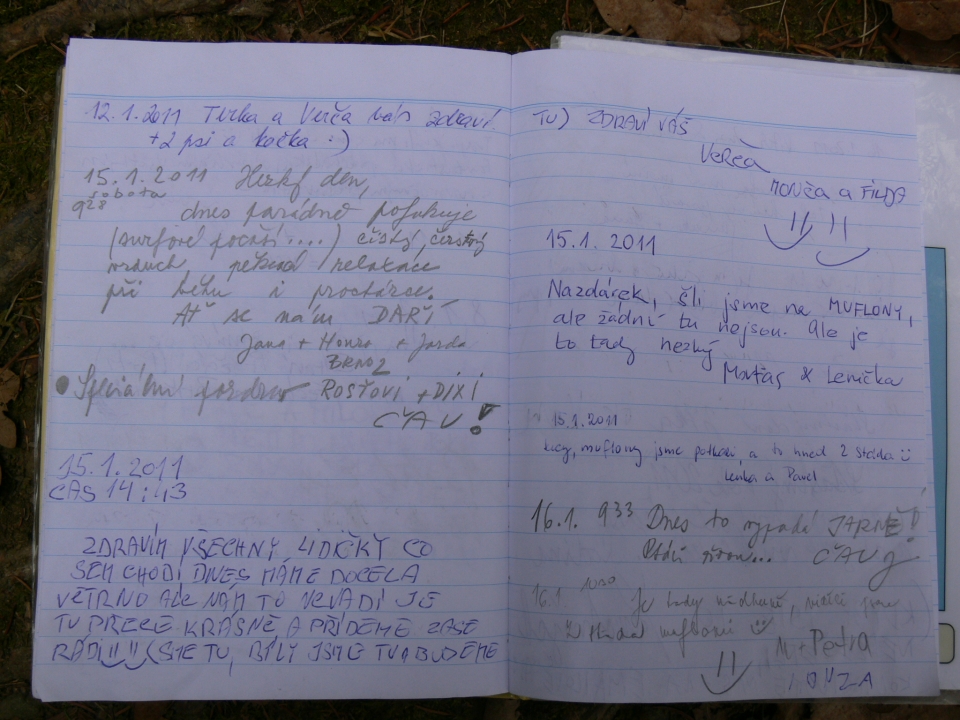 12.1.2011 Terka a Verča vás zdraví
+2 psi a kočka :)
15.1.2011 Hezký den,
sobota
9 28 dnes parádně pofukuje
(surfové počasí....) čistý, čerstvý
vzduch, relaxace
při běhu i procházce.
Ať se nám DAŘÍ
Jana + Honza + Jarda
BRNO 2
• Speciální pozdrav ROSŤOVI + DIXI
ČAU!
15.1.2011
ČAS 14:43
ZDRAVÍM VŠECHNY LIDIČKY CO
SEM CHODÍ DNES MÁME DOCELA
VĚTRNO ALE NÁM TO NEVADÍ JE
TU PŘECE KRÁSNĚ A PŘÍDEME ZASE
RÁDI!! (SME TU, BYLY JSME TU A BUDEME
TU) ZDRAVÍ VÁS
Verča
MONČA a
15.1. 2011
Nazdárek, šli jsme na MUFLONY,
ale žádní tu nejsou. Ale je
to tady hezký
Maťas & Lenička
15.1.2011
muflony jsme potkali, a to hned 2 stáda
Lenka a Pavel
16.1. 9 33 Dnes to vypadá JARNĚ!
Ptáci ČAU
16.1 10 30 Je tady nádherně,
muflonů
M + Petra
HONZA